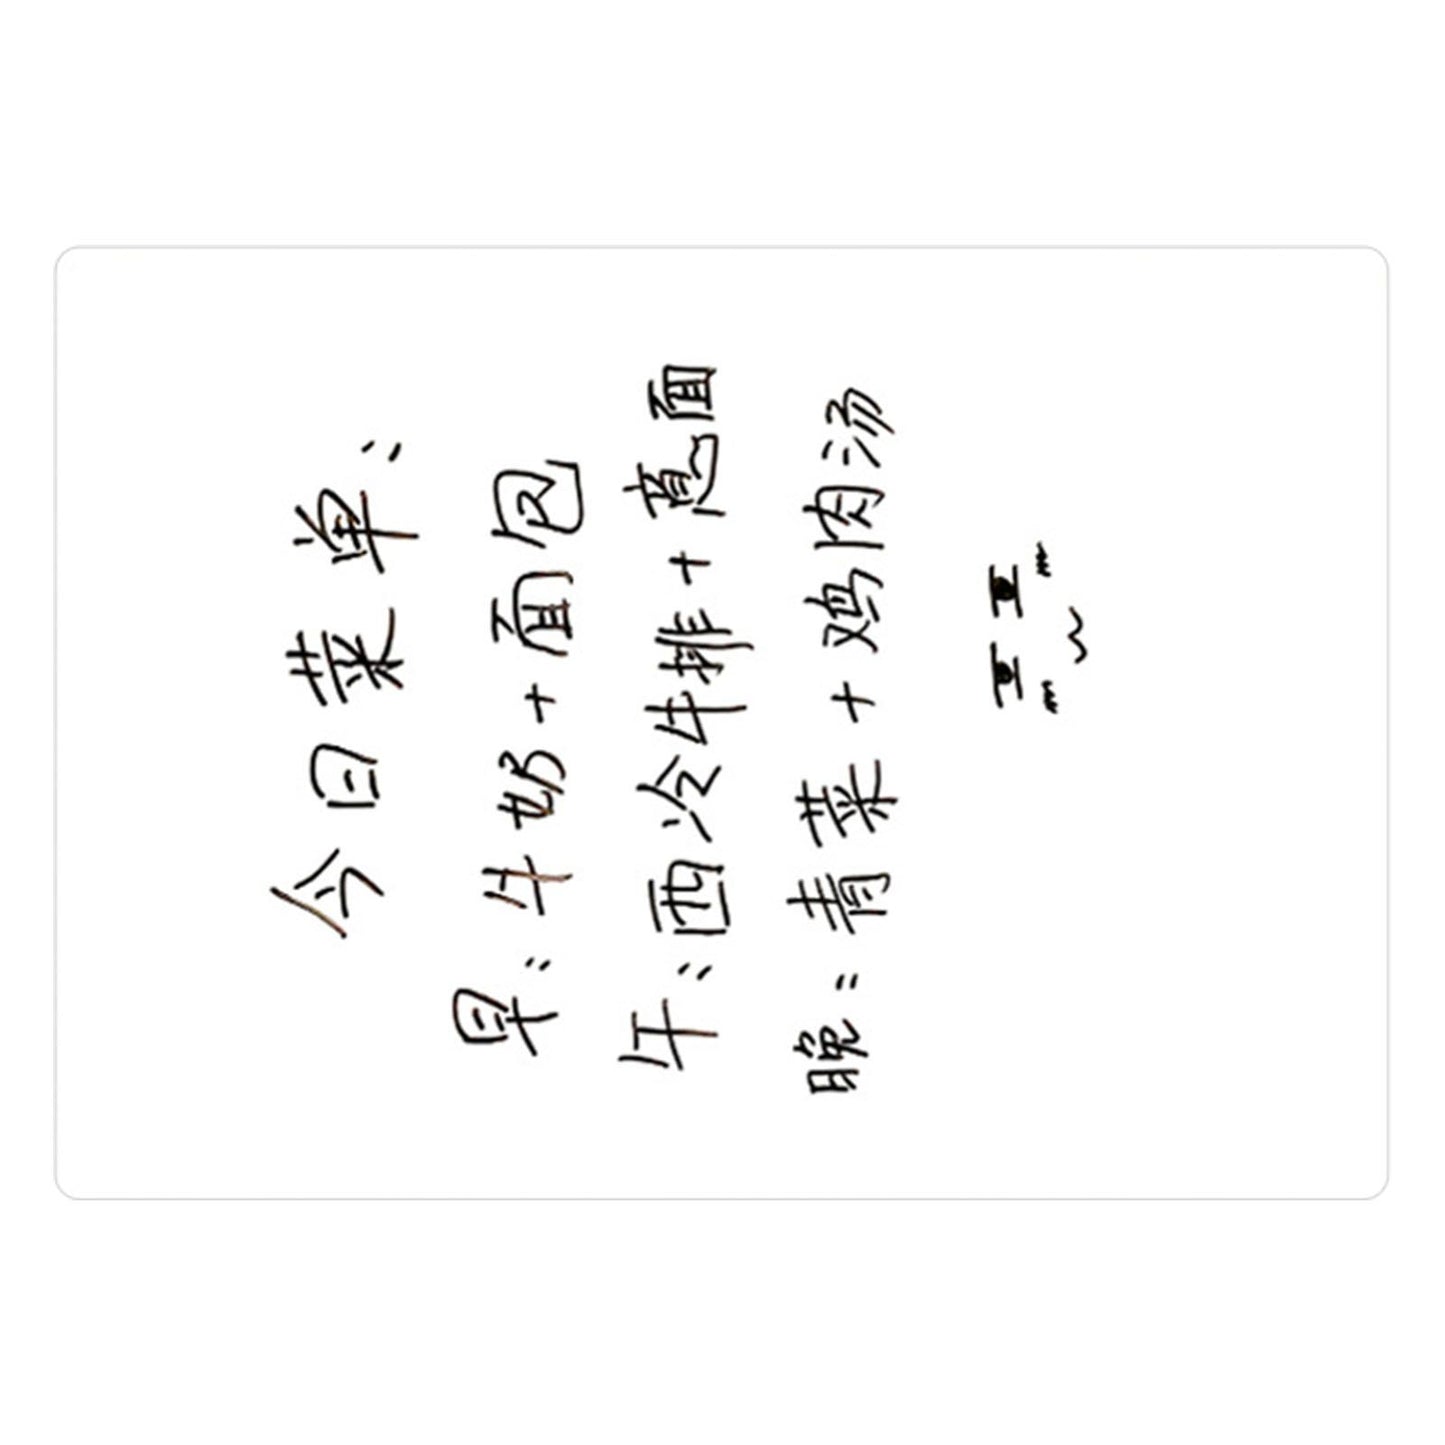 今日菜单：
早：牛奶+面包
午：西冷牛排+意面
晚：青菜+鸡肉汤